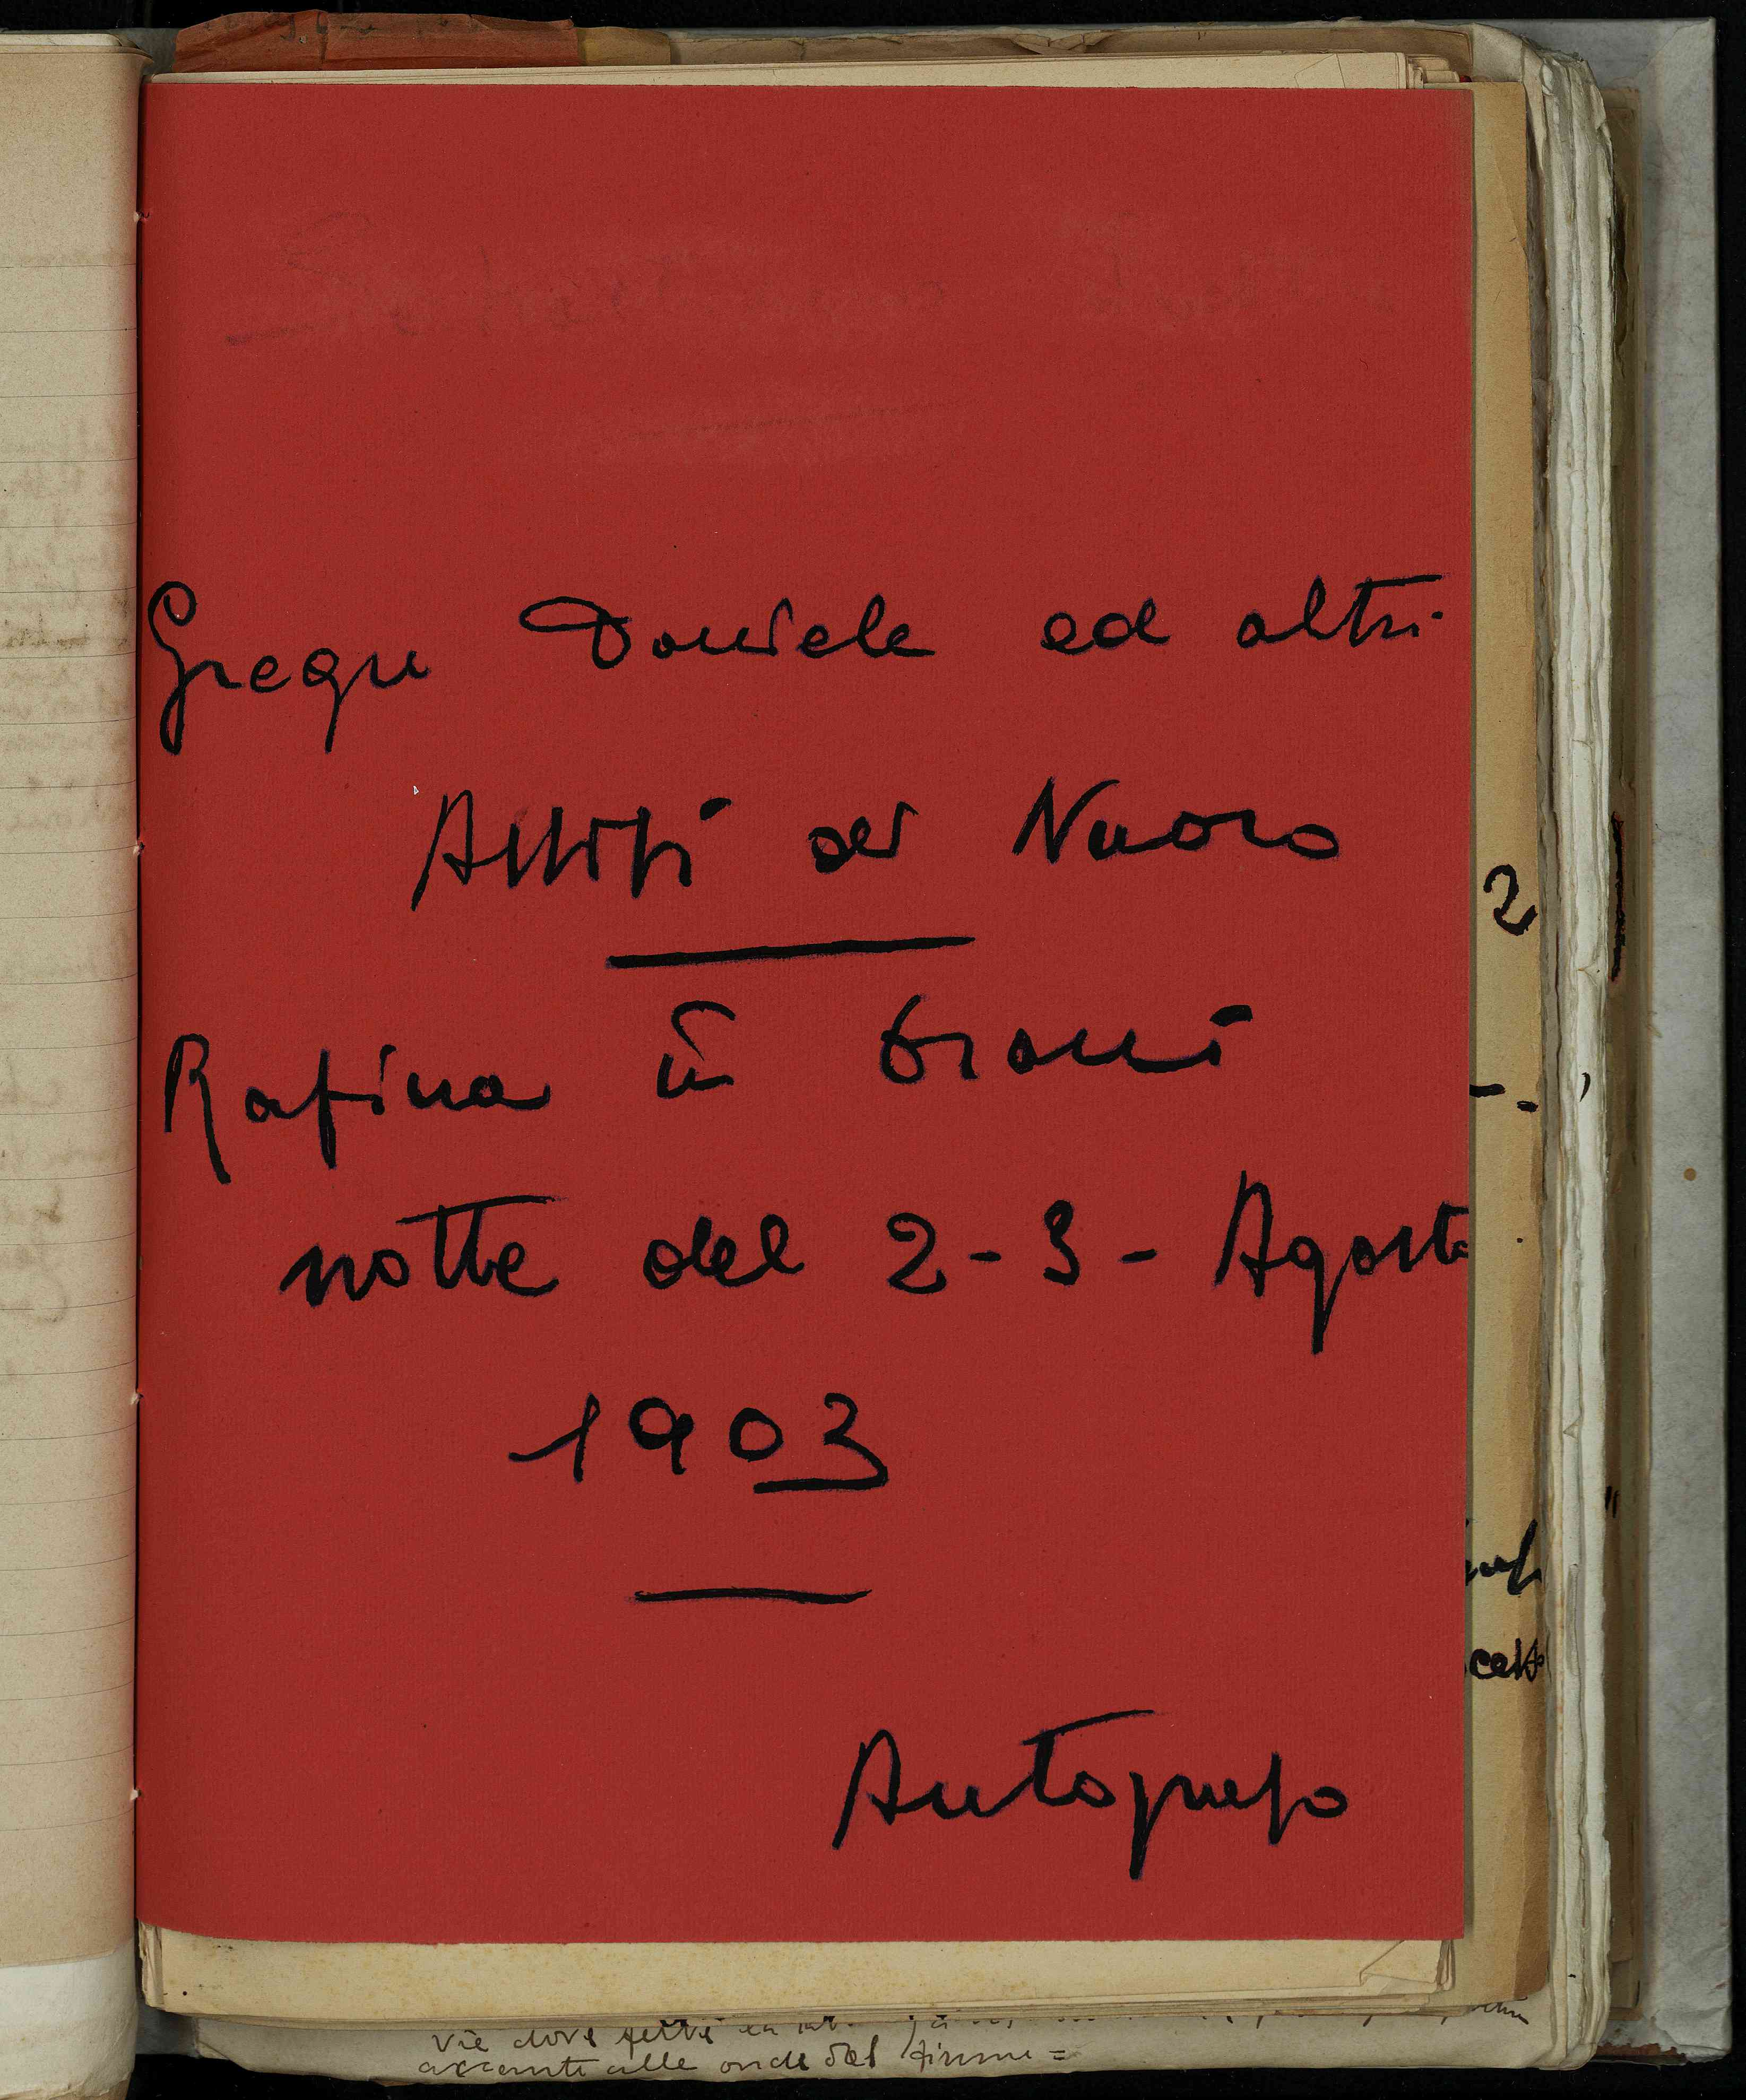 Gregu Daniele ed altri
Assisi di Nuoro
Rapina in Orani
notte del 2-3- Agosto
1903
Autografo
2
vie dove
accanto alle onde del fiume =